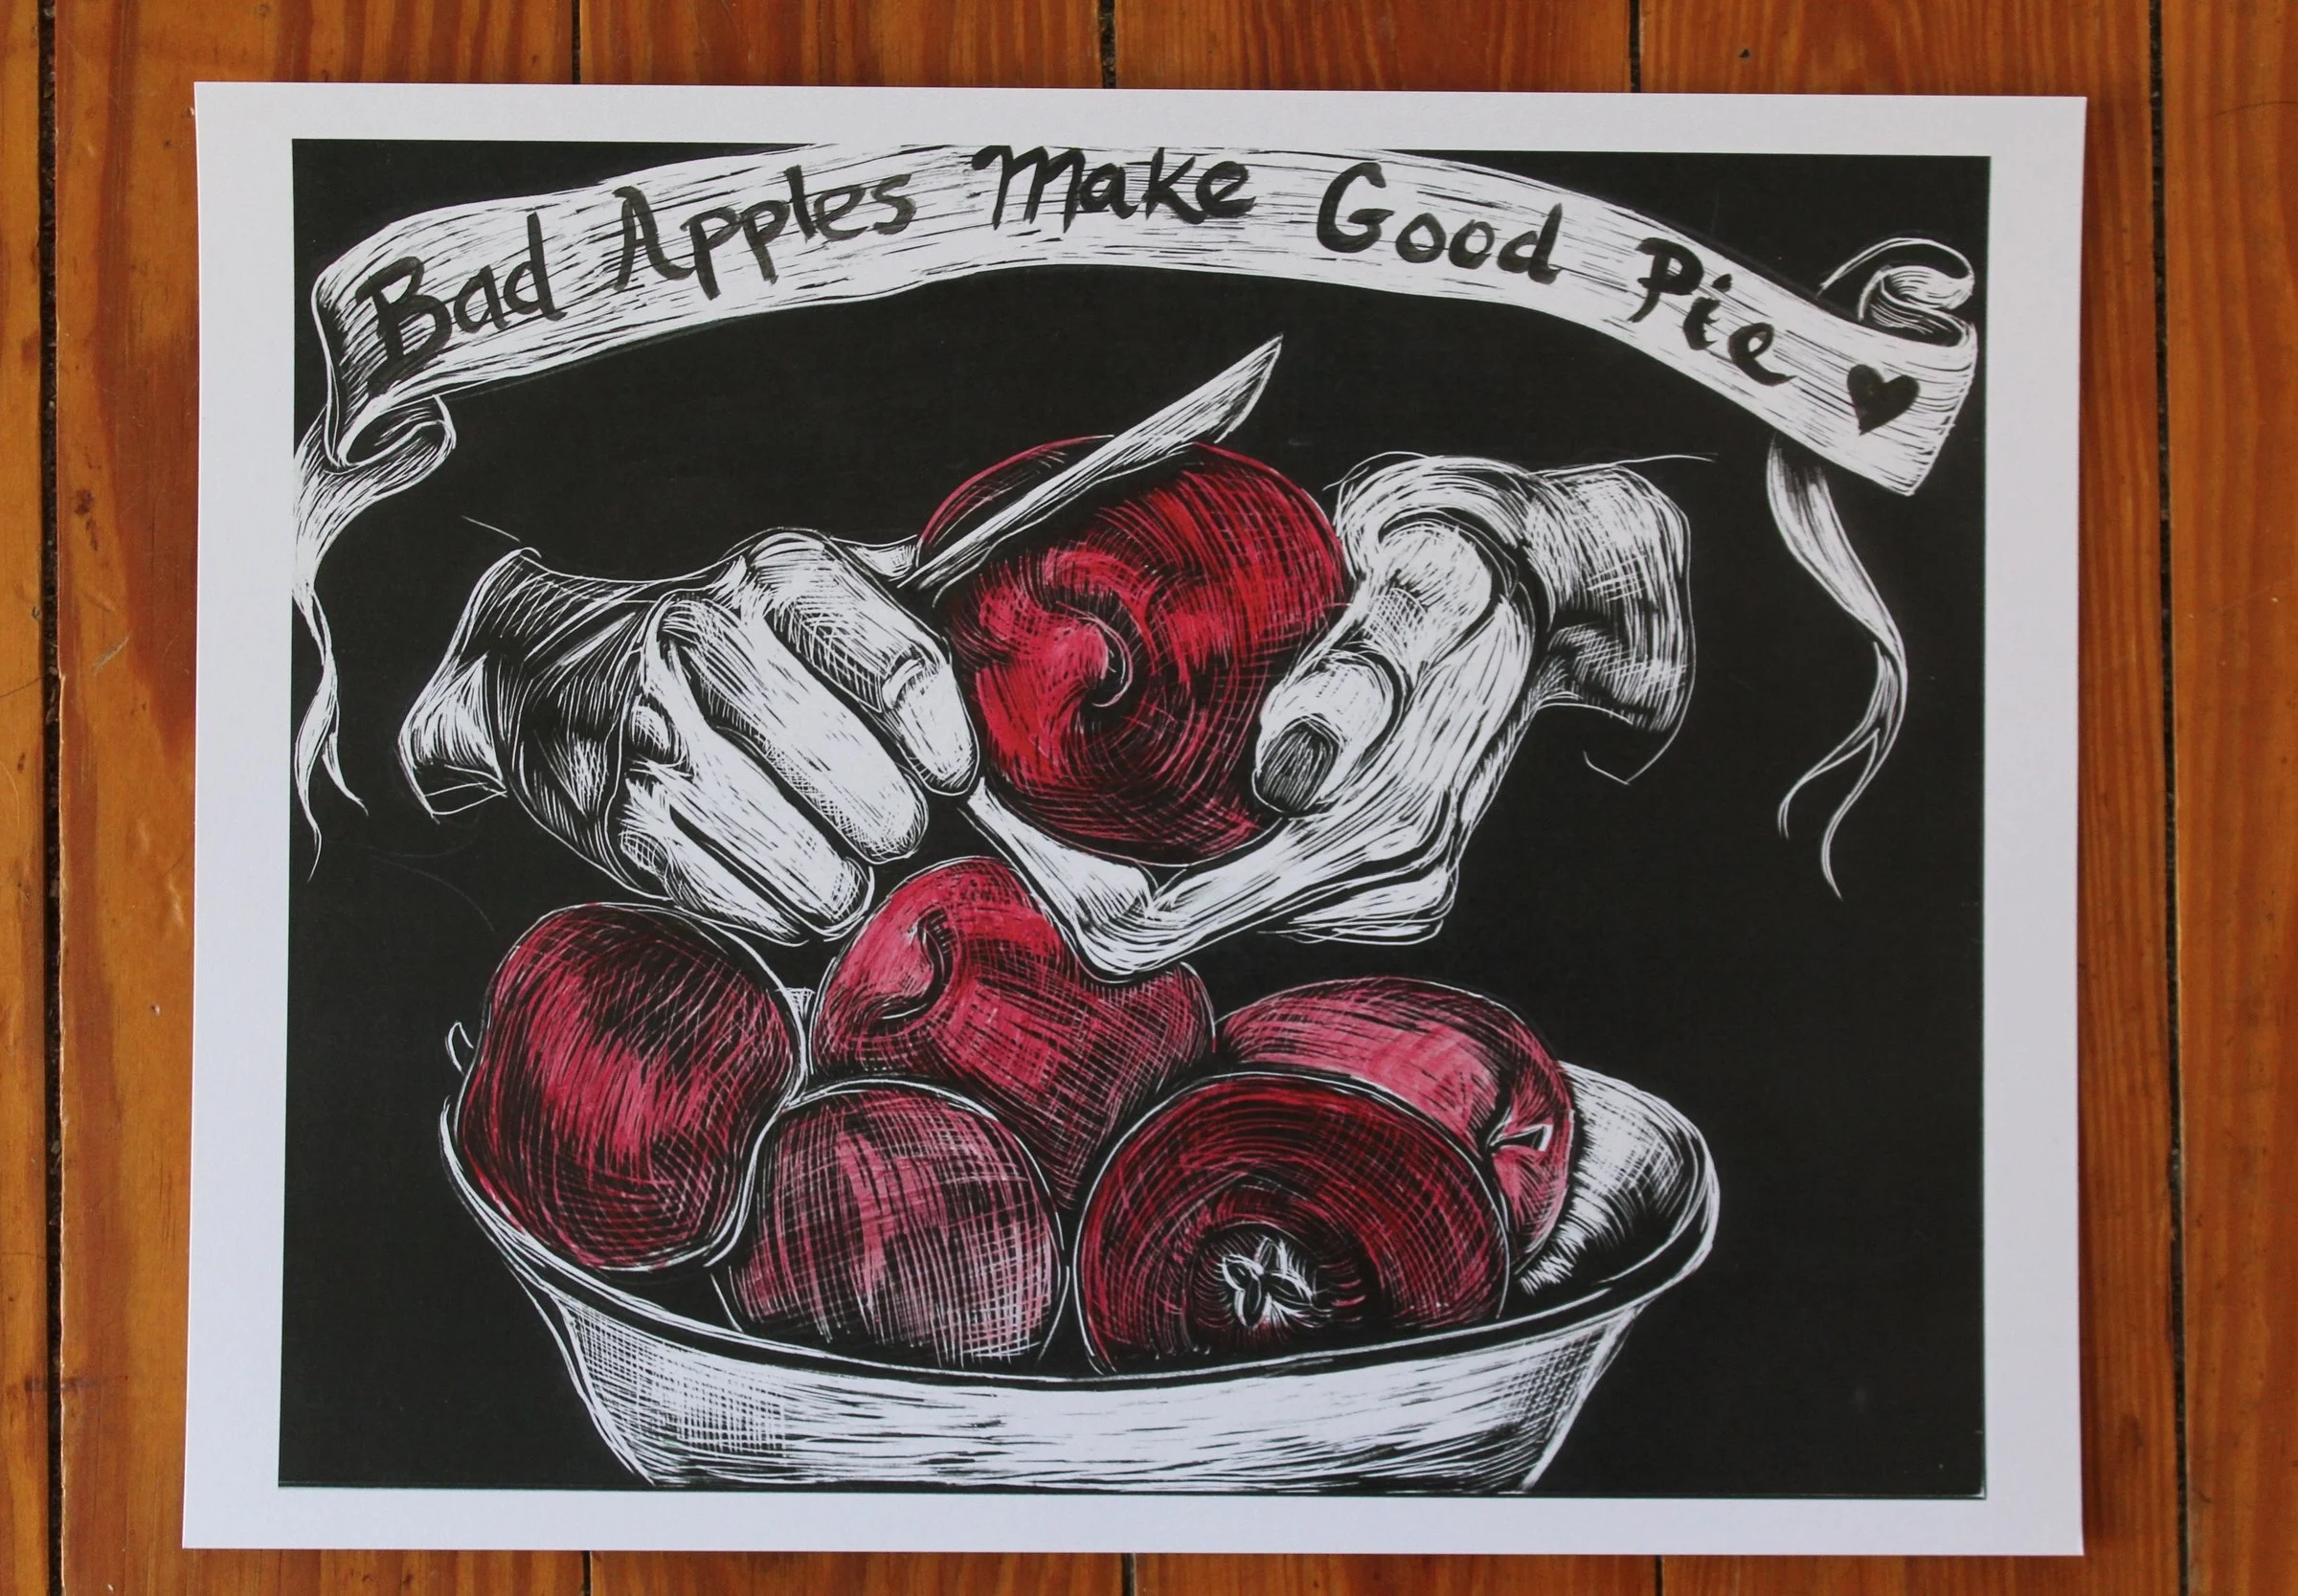 Bad Apples Make Good Pie ♥